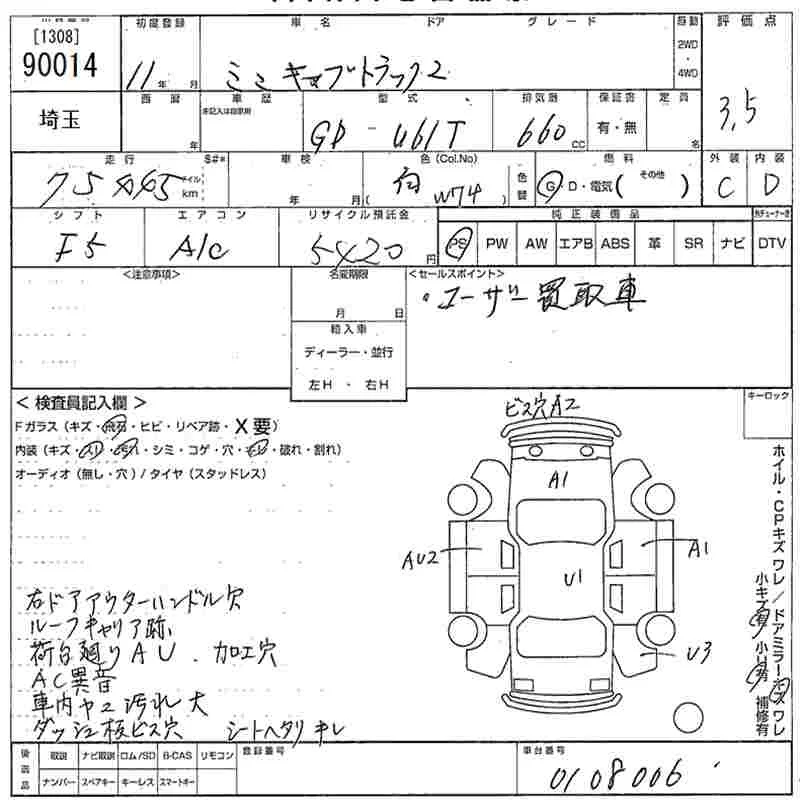 [1308]
90014
初度登録
車名
ドア
グレード
駆動
評価点
11年 月
ミニキャブトラック2
2WD
・
4WD
3,5
埼玉
西暦
年
車歴
未記入は自家用
型式
GD - U61T
排気量
660 CC
保証書
有・無
定員
名
走行
S#*
車検
色 (Col.No)
色替
燃料
外装
内装
km
年 月
白 ( W74 )
G・D・電気( その他 )
C
D
シフト
エアコン
リサイクル預託金
純正装備品
F5
A/C
5420 円
PS
PW
AW
エアB
ABS
革
SR
ナビ
DTV
<注意事項>
名変期限
月 日
<セールスポイント>
・ユーザー買取車
輸入車
ディーラー・並行
左H ・ 右H
< 検査員記入欄 >
キーロック
Fガラス (キズ・飛石・ヒビ・リペア跡・X要)
内装 (キズ・スリ・汚れ・シミ・コゲ・穴・ビス・破れ・割れ)
オーディオ (無し・穴) / タイヤ (スタッドレス)
ビス穴 A2
A1
AU2
A1
U1
U3
ホイル・CPキズ ワレ / ドアミラーキズ ワレ
小キズ有 小U有 補修有
右ドアアウターハンドル穴
ルーフキャリア跡
荷台廻りAU . 加工穴
AC異音
車内ヤニ汚れ大
ダッシュ板ビス穴 シートヘタリ キレ
後日品
取説
ナビ取説
ロム/SD
B-CAS
リモコン
登録番号
車台番号
ナンバー
スペアキー
キーレス
スマートキー
0108006